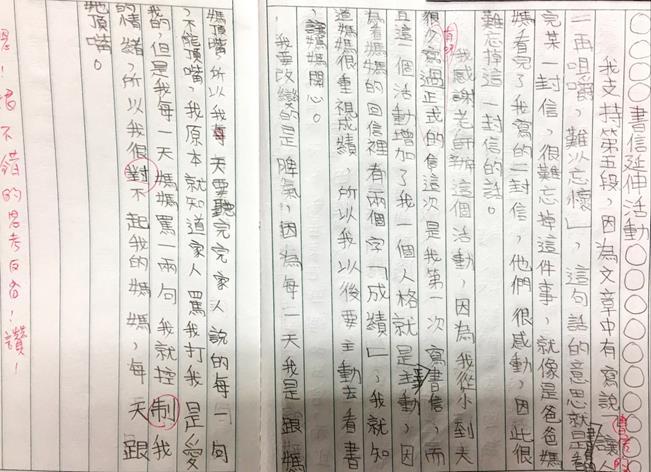 ○○○○○○書信延伸活動○○○○○○○
我支持第五段,因為文章中有寫說「讓人
一再咀嚼,難以忘懷」,這句話的意思就是看
完某一封信,很難忘掉這件事,就像是爸爸媽
媽看完了我寫的一封信,他們很感動,因此很
難忘掉這一封信的話。
我感謝老師辦這個活動,因為我從小到大
很少寫過正式的信這次是我第一次寫書信,而
且這一個活動增加了我一個人格就是主動,因
為看媽媽的回信裡有兩個字「成績」,我就知
道媽媽很重視成績,所以我以後要主動去看書
,讓媽媽開心。
我要改變的是脾氣,因為每一天我是跟媽
媽頂嘴,所以我每天要聽完完家人說的每一句
,不能頂嘴,我原本就知道家人罵我打我是愛
我的,但是我每一天媽媽罵一兩句我就控制我
的情緒,所以我很對不起我的媽媽,每天跟
她頂嘴。
不錯的思考反省!讚!